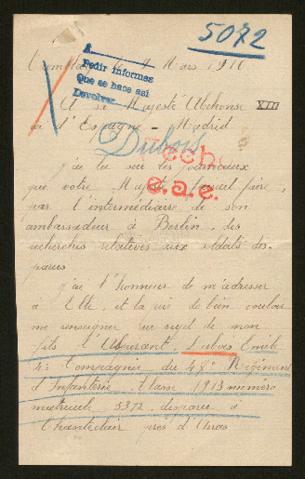 5072
le 9 Mars 1916
Pedir informes
Que se hace así
Devolver
A sa Majesté Alphonse XIII
roi d'Espagne - Madrid
Dubois
Hecho
e.a.e.
J'ai lu sur les journaux
que votre Majesté faisait faire,
par l'intermédiaire de son
ambassadeur à Berlin, des
recherches relatives aux soldats dis-
parus
J'ai l'honneur de m'adresser
à Elle, et la prie de bien vouloir
me renseigner au sujet de mon
fils Dubois Emile
4e Compagnie du 48e Régiment
d'Infanterie classe 1913 numéro
matricule 5372, disparu à
Chanteclair près d'Arras